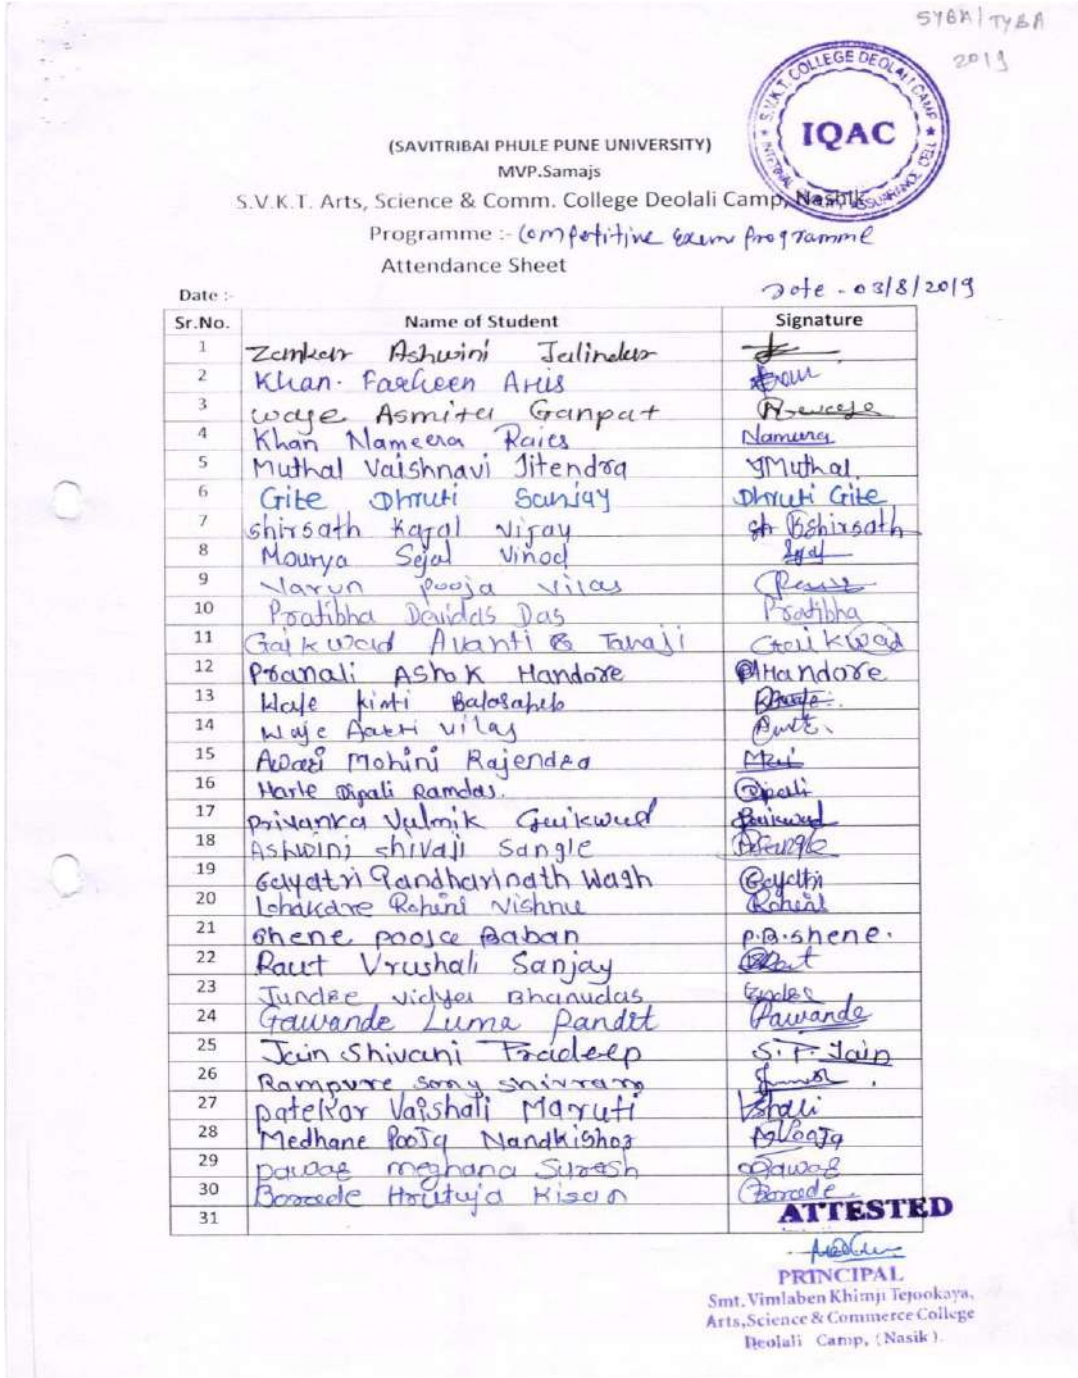 SYBA/TYBA
2019
S.V.K.T. COLLEGE DEOLALI CAMP
INTERNAL ASSURANCE CELL
IQAC
(SAVITRIBAI PHULE PUNE UNIVERSITY)
MVP.Samajs
S.V.K.T. Arts, Science & Comm. College Deolali Camp, Nashik
Programme :- Competitive Exam programme
Attendance Sheet
Date :- Date - 03/8/2019
Sr.No. Name of Student Signature
1 Zamkar Ashwini Jalindar
2 Khan. Farheen Anis
3 Waje Asmita Ganpat
4 Khan Nameera Raies Namera
5 Muthal Vaishnavi Jitendra Muthal
6 Gite Dhruti Sanjay Dhruti Gite
7 Shirsath Kajal Vijay Kshirsath
8 Mourya Sejal Vinod
9 Varun Pooja Vilas
10 Pratibha Devidas Das Pratibha
11 Gaikwad Avanti Tanaji Gaikwad
12 Pranali Ashok Handore Handore
13 Balasaheb
14 Waje Aarti Vilas
15 Awari Mohini Rajendra
16 Harle Dipali Ramdas. Dipali
17 Priyanka Valmik Gaikwad Gaikwad
18 Ashwini Shivaji Sangle ASangle
19 Gayatri Gandharinath Wagh Gayatri
20 Lohakare Rohini Vishnu Rohini
21 Shene Pooja Baban P.B.Shene.
22 Raut Vrushali Sanjay
23 Jundre Vidya Bhanudas
24 Gawande Luma Pandit Gawande
25 Jain Shivani Pradeep S.P. Jain
26 Rampure Sony Shivram
27 Patekar Vaishali Maruti
28 Medhane Pooja Nandkishor
29 Pawar Meghana Suresh Pawar
30 Borade Hrutuja Kisan Borade
31
ATTESTED
PRINCIPAL
Smt. Vimlaben Khimji Tejookaya,
Arts,Science & Commerce College
Deolali Camp, (Nasik).